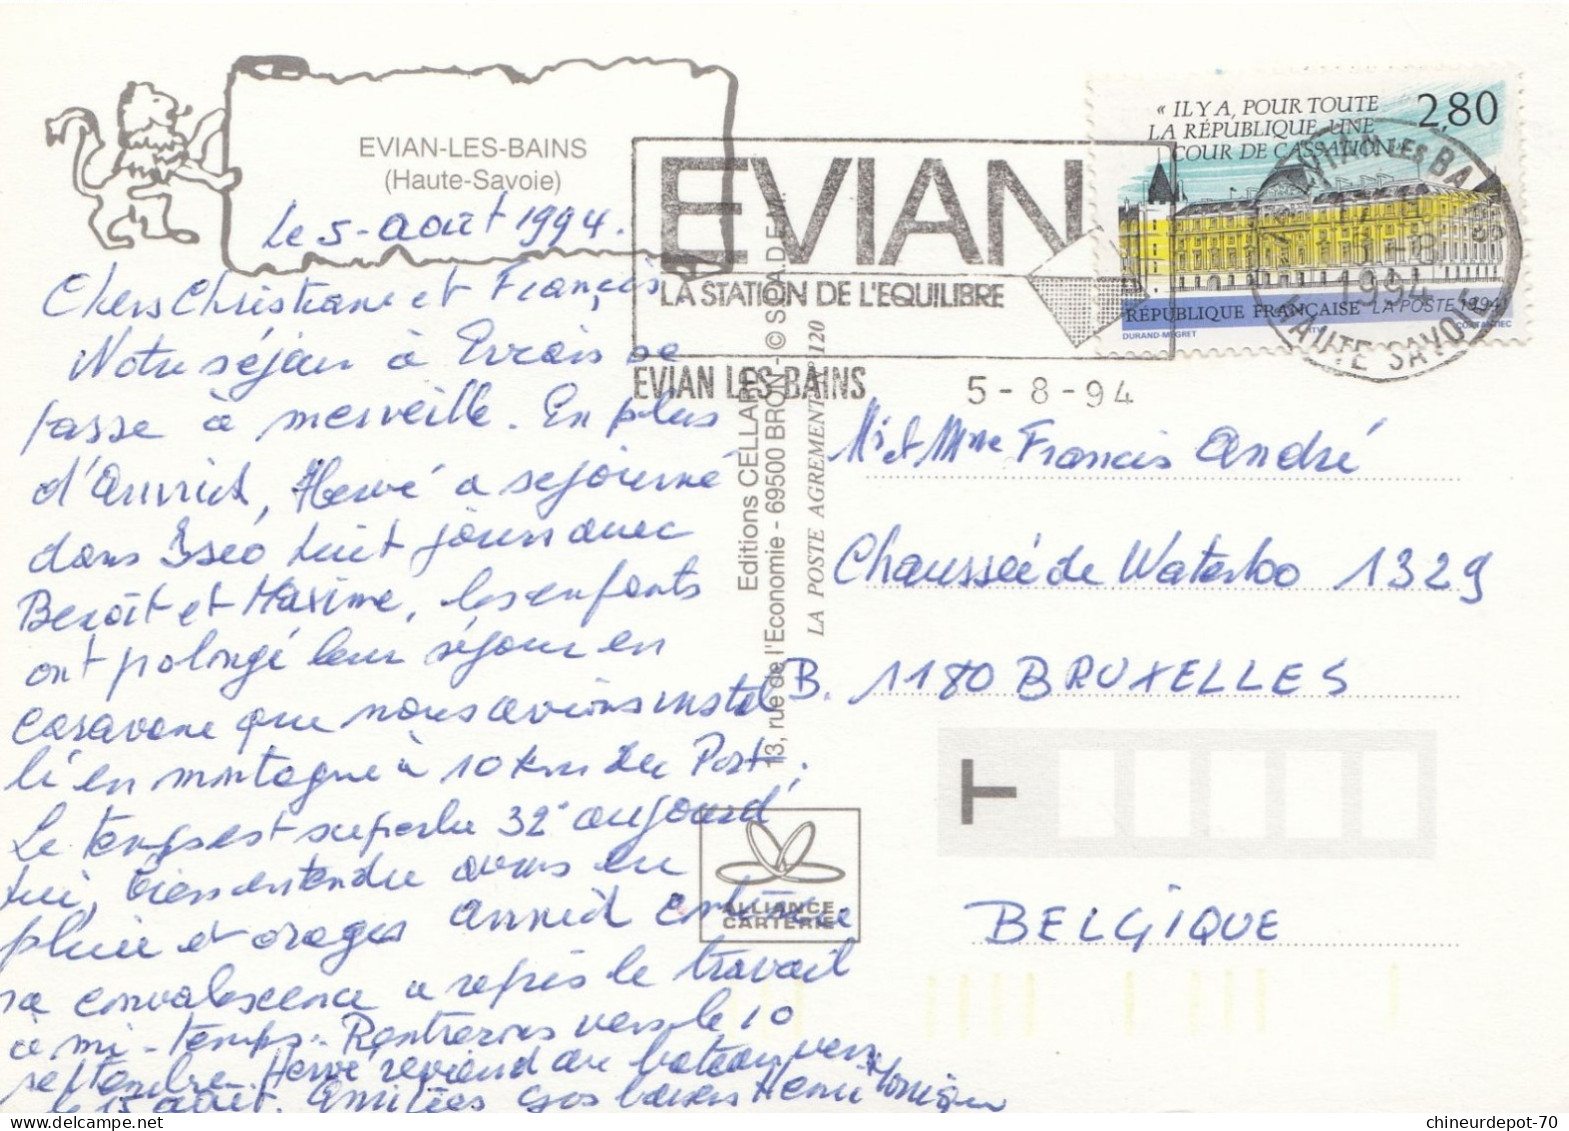 EVIAN-LES-BAINS
(Haute-Savoie)
Le 5-août 1994.
Chers Christiane et Francis
Notre séjour à Evian se
passe à merveille. En plus
d', Hervé a sejourné
dans huit jours avec
Benoît et Maxime, les enfants
ont polongé leur séjour en
caravane que nous avions instal
lé en montagne à 10 km du Port.
Le temps est superbe 32° aujourd'
hui, bien entendu avons eu
pluie et orages
sa convalescence a repris le travail
à mi-temps. Rentrerons vers le 10
septembre. Hervé reviend au bateau vers
le 15 août. Amitiés Gros baisers Henri Monique
EVIAN
LA STATION DE L'EQUILIBRE
EVIAN LES BAINS 5-8-94
« IL Y A, POUR TOUTE
LA RÉPUBLIQUE, UNE
COUR DE CASSATION »
2,80
RÉPUBLIQUE FRANÇAISE LA POSTE 1994
DURAND-MEGRET ITVF
EVIAN LES BAINS
5-8
1994
HAUTE SAVOIE
Editions CELLARD
13, rue de l'Economie - 69500 BRON - © S.P.A.D.E.M.
LA POSTE AGREMENT N° 120
Mr et Mme Francis André
Chaussée de Waterloo 1329
B. 1180 BRUXELLES
BELGIQUE
T
ALLIANCE
CARTERIE
chineurdepot-70